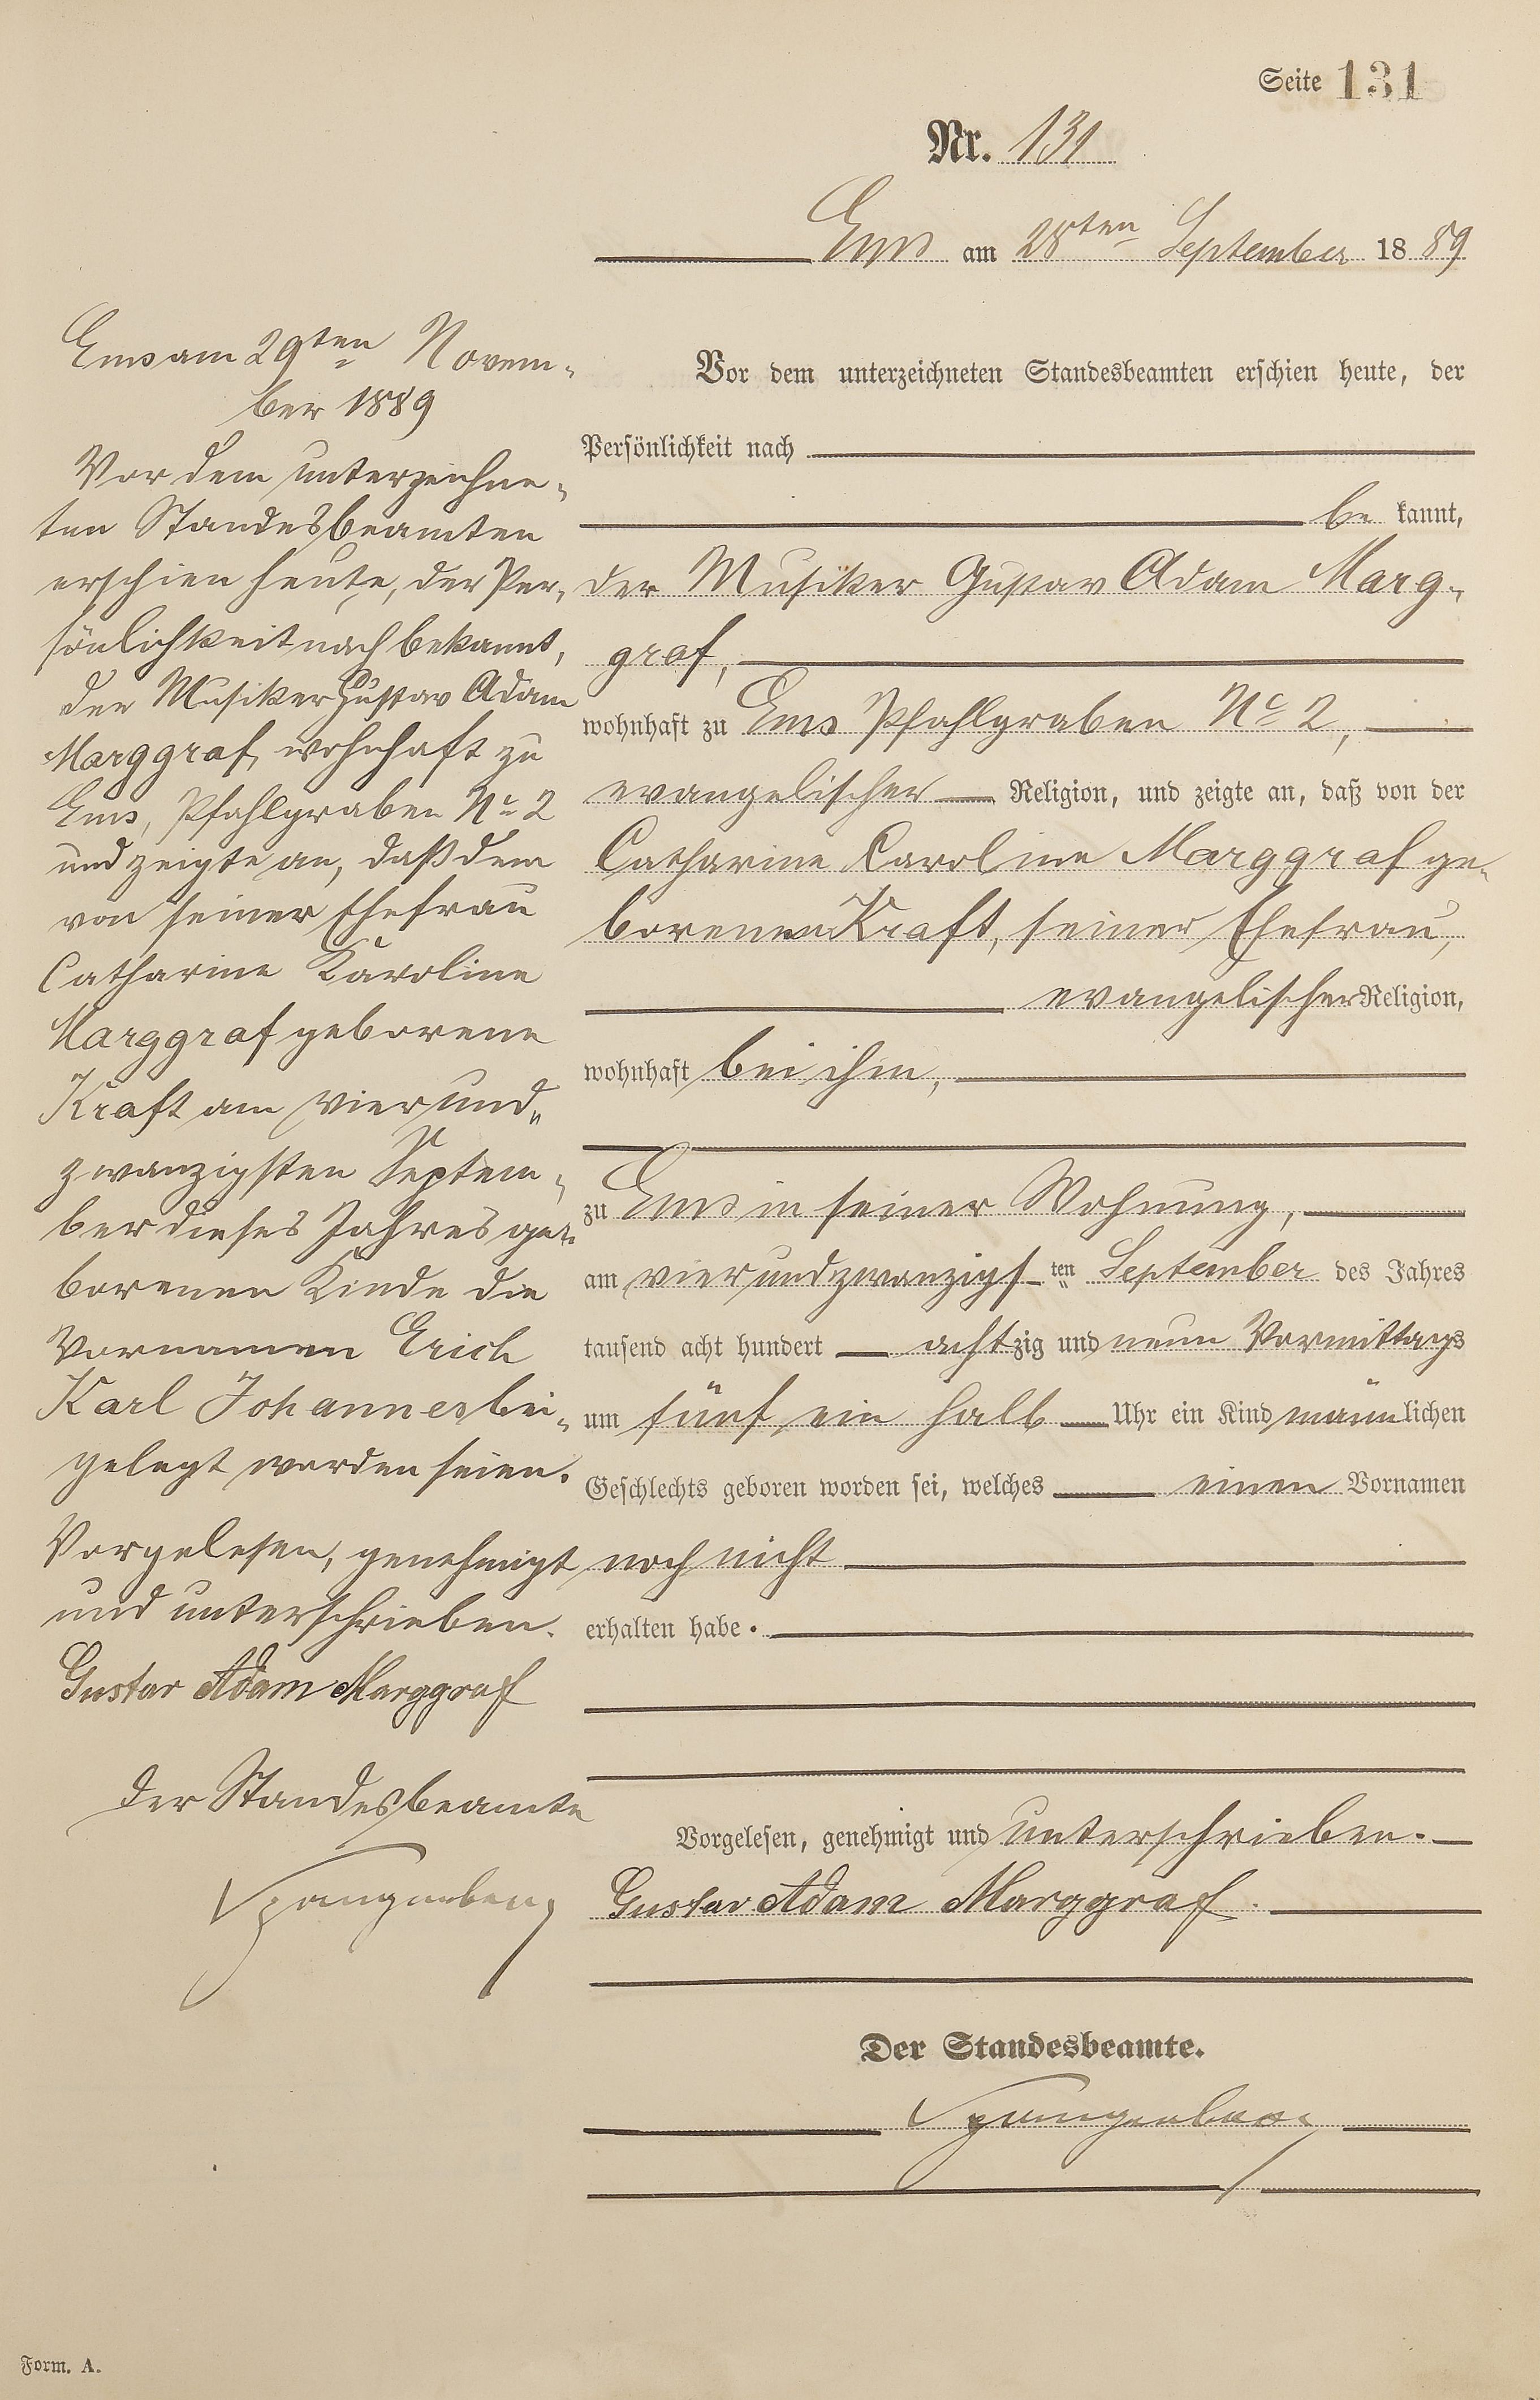 Seite 131
Nr. 131
Ems am 28ten September 1889
Vor dem unterzeichneten Standesbeamten erschien heute, der
Persönlichkeit nach
be kannt,
der Musiker Gustav Adam Marg-
graf,
wohnhaft zu Ems Pfahlgraben No 2,
evangelischer Religion, und zeigte an, daß von der
Catharine Caroline Marggraf ge-
borenen Kraft, seiner Ehefrau,
evangelischer Religion,
wohnhaft bei ihm,
zu Ems in seiner Wohnung,
am vierundzwanzigs ten September des Jahres
tausend acht hundert achtzig und neun Vormittags
um fünf ein halb Uhr ein Kind männlichen
Geschlechts geboren worden sei, welches einen Vornamen
noch nicht
erhalten habe.
Vorgelesen, genehmigt und unterschrieben.
Gustav Adam Marggraf
Der Standesbeamte.
Spangenberg
Ems am 29ten Novem-
ber 1889
Vor dem unterzeichne-
ten Standesbeamten
erschien heute, der Per-
sönlichkeit nach bekannt,
der Musiker Gustav Adam
Marggraf, wohnhaft zu
Ems, Pfahlgraben No 2
und zeigte an, daß dem
von seiner Ehefrau
Catharine Karoline
Marggraf geborene
Kraft am vierund-
zwanzigsten Septem-
ber dieses Jahres ge-
borenen Kinde die
Vornamen Erich
Karl Johannes bei-
gelegt worden seien.
Vorgelesen, genehmigt
und unterschrieben.
Gustav Adam Marggraf
Der Standesbeamte
Spangenberg
Form. A.